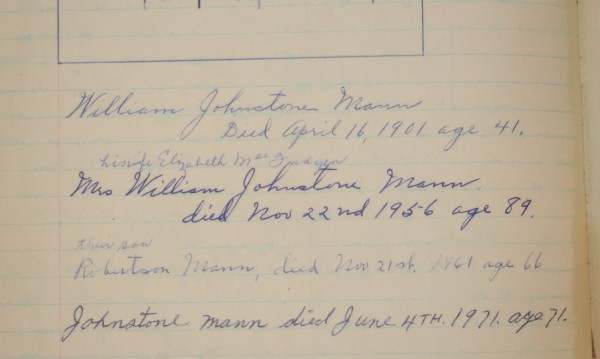 William Johnstone Mann
Died April 16, 1901 age 41.
his wife Elizabeth
Mrs William Johnstone Mann
died Nov 22nd 1956 age 89.
their son
Robertson Mann, died Nov 21st. 1961 age 66
Johnstone Mann died June 4TH. 1971. age 71.